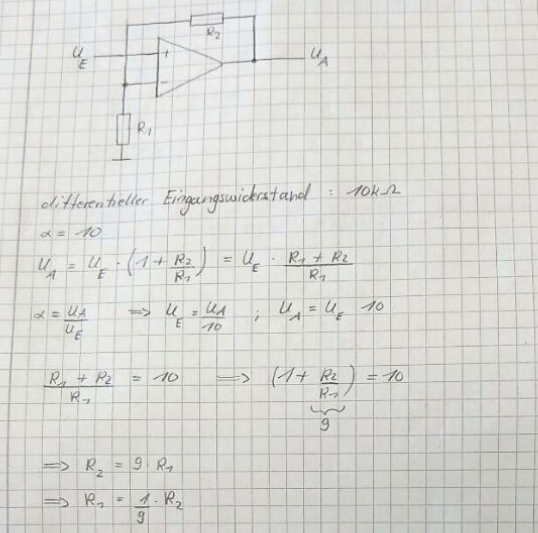 R₂
U_E + U_A
−
R₁
differentieller Eingangswiderstand : 10kΩ
α = 10
U_A = U_E · (1 + R₂/R₁) = U_E · (R₁ + R₂)/R₁
α = U_A/U_E ⇒ U_E = U_A/10 ; U_A = U_E 10
(R₁ + R₂)/R₁ = 10 ⇒ (1 + R₂/R₁) = 10
9
⇒ R₂ = 9 · R₁
⇒ R₁ = 1/9 · R₂